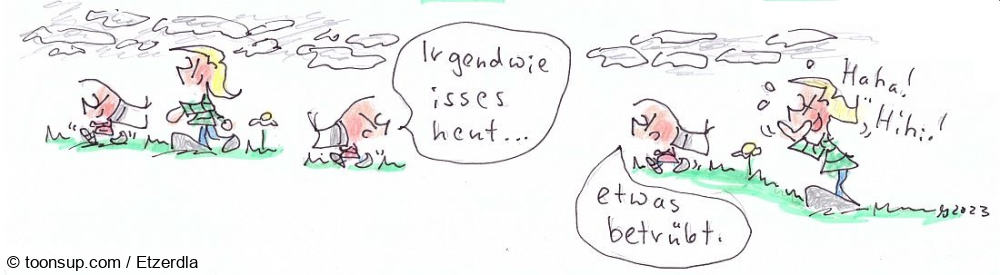 Irgendwie
isses
heut...
etwas
betrübt.
Haha!
Hihi!
2023
© toonsup.com / Etzerdla